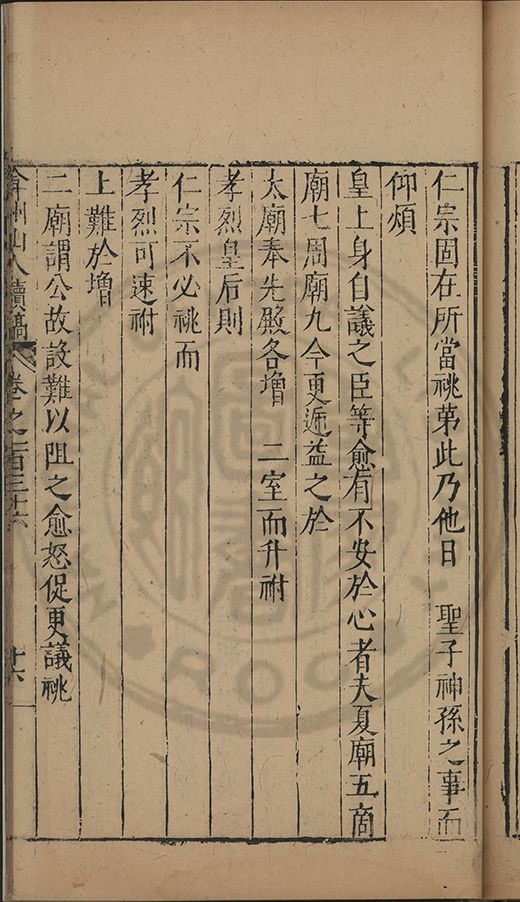 仁宗固在所當祧第此乃他日　聖子神孫之事而
仰煩
皇上身自議之臣等愈有不安於心者夫夏廟五商
廟七周廟九今更遞益之於
太廟奉先殿各增　二室而升祔
孝烈皇后則
仁宗不必祧而
孝烈可速祔
上難於增
二廟謂公故設難以阻之愈怒促更議祧
弇州山人續稿　卷之一百三十六　十六